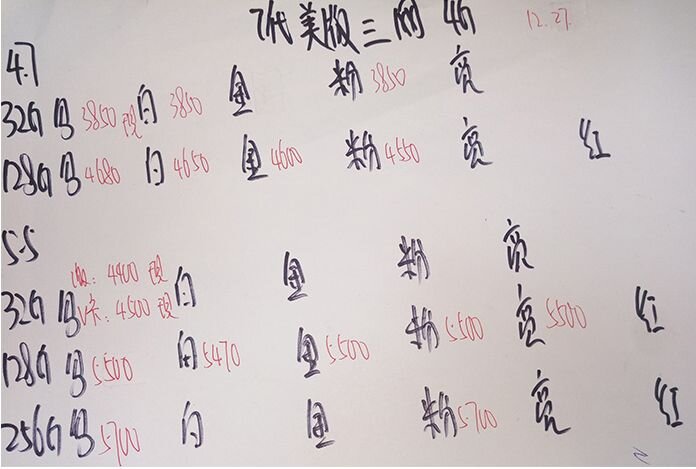 7代美版三网 4G 12.27
4.7
32G 黑 3850 现 白 3850 金 粉 3850 亮
128G 黑 4680 白 4650 金 4600 粉 4550 亮 红
5.5
4400 现 白 金 粉 亮
32G 黑 4500 现 红
128G 黑 5500 白 5470 金 5500 粉 5500 亮 5500
256G 黑 5700 白 金 粉 5700 亮 红